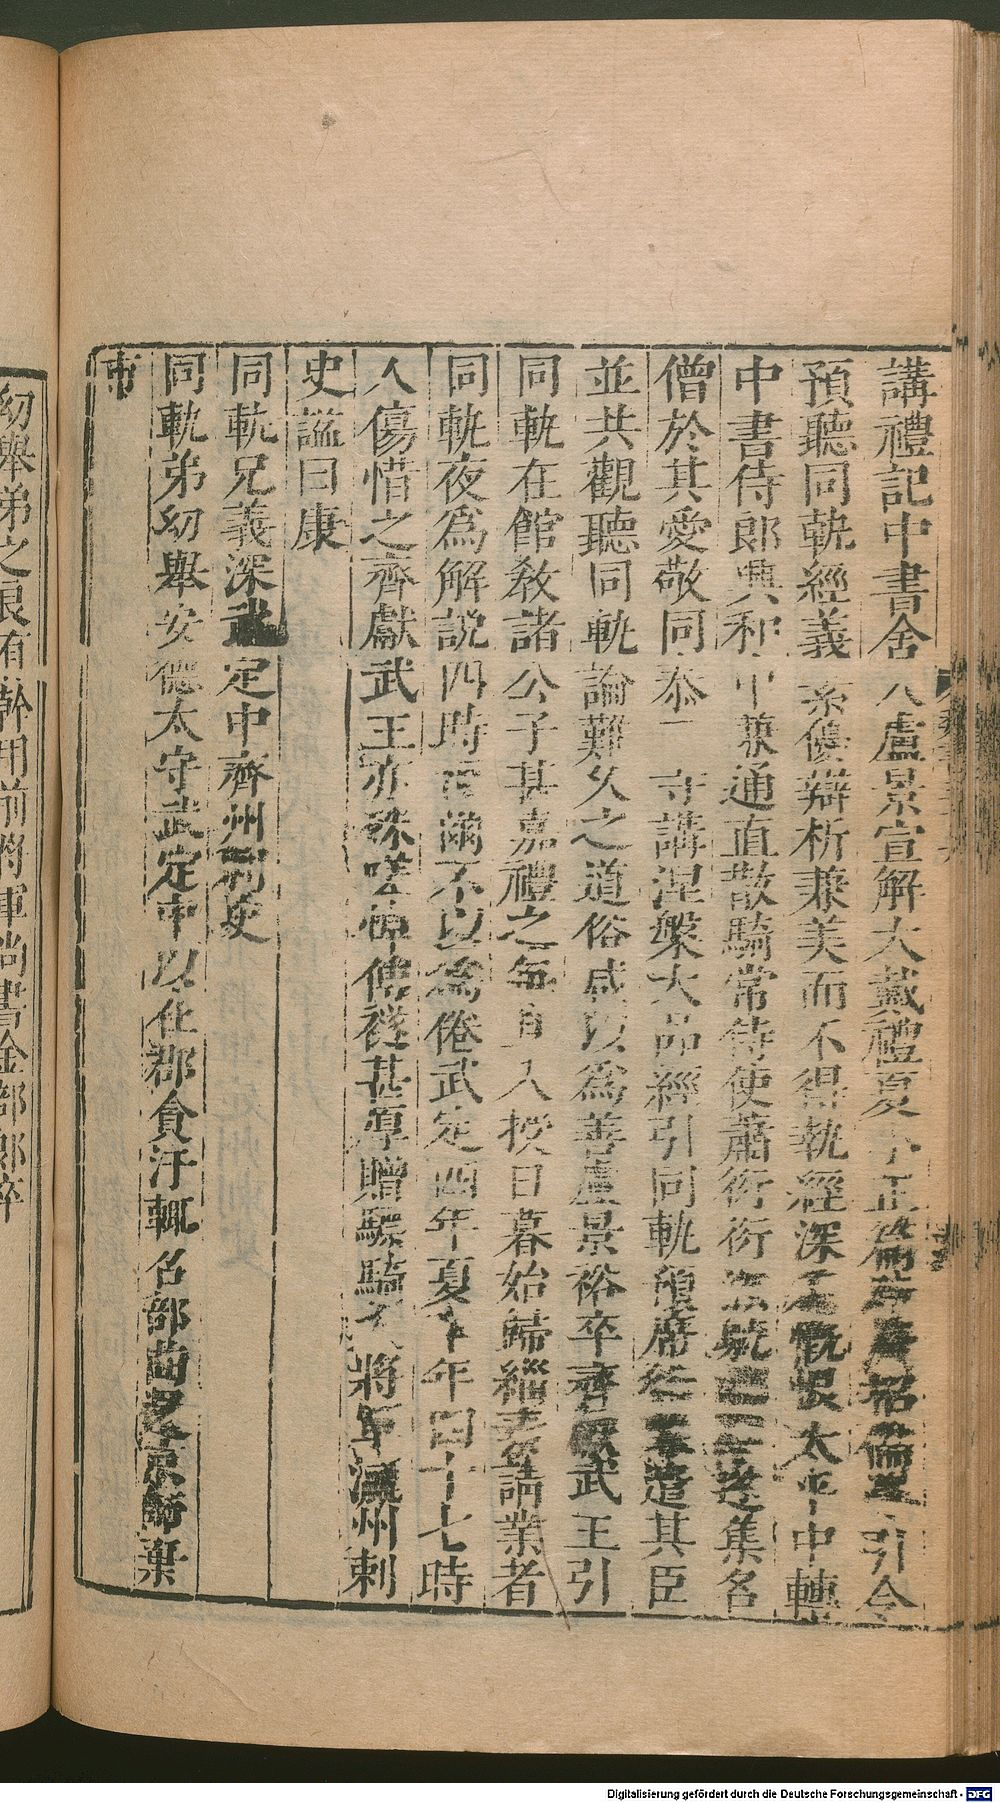 講禮記中書舍人盧景宣解大戴禮夏小正篇時廣招儒學引令
預聽同軌經義素優辯析兼美而不得執經深為慨恨太平中轉
中書侍郎興和中兼通直散騎常侍使蕭衍衍遂集名
僧於其愛敬同泰寺講涅槃大品經引同軌預席遣其臣
並共觀聽同軌論難久之道俗咸以為善盧景裕卒齊獻武王引
同軌在館教諸公子甚嘉禮之每旦入授日暮始歸緇素請業者
同軌夜為解說四時不以為倦武定四年夏卒年四十七時
人傷惜之齊獻武王亦殊嗟悼傅襚甚厚贈驃騎大將軍瀛州刺
史謚曰康
同軌兄義深武定中齊州刺史
同軌弟幼舉安德太守武定中以在郡貪汙輒名部曲還京師棄
市
幼舉弟之良有幹用前將軍尚書金部郎卒
Digitalisierung gefördert durch die Deutsche Forschungsgemeinschaft - DFG